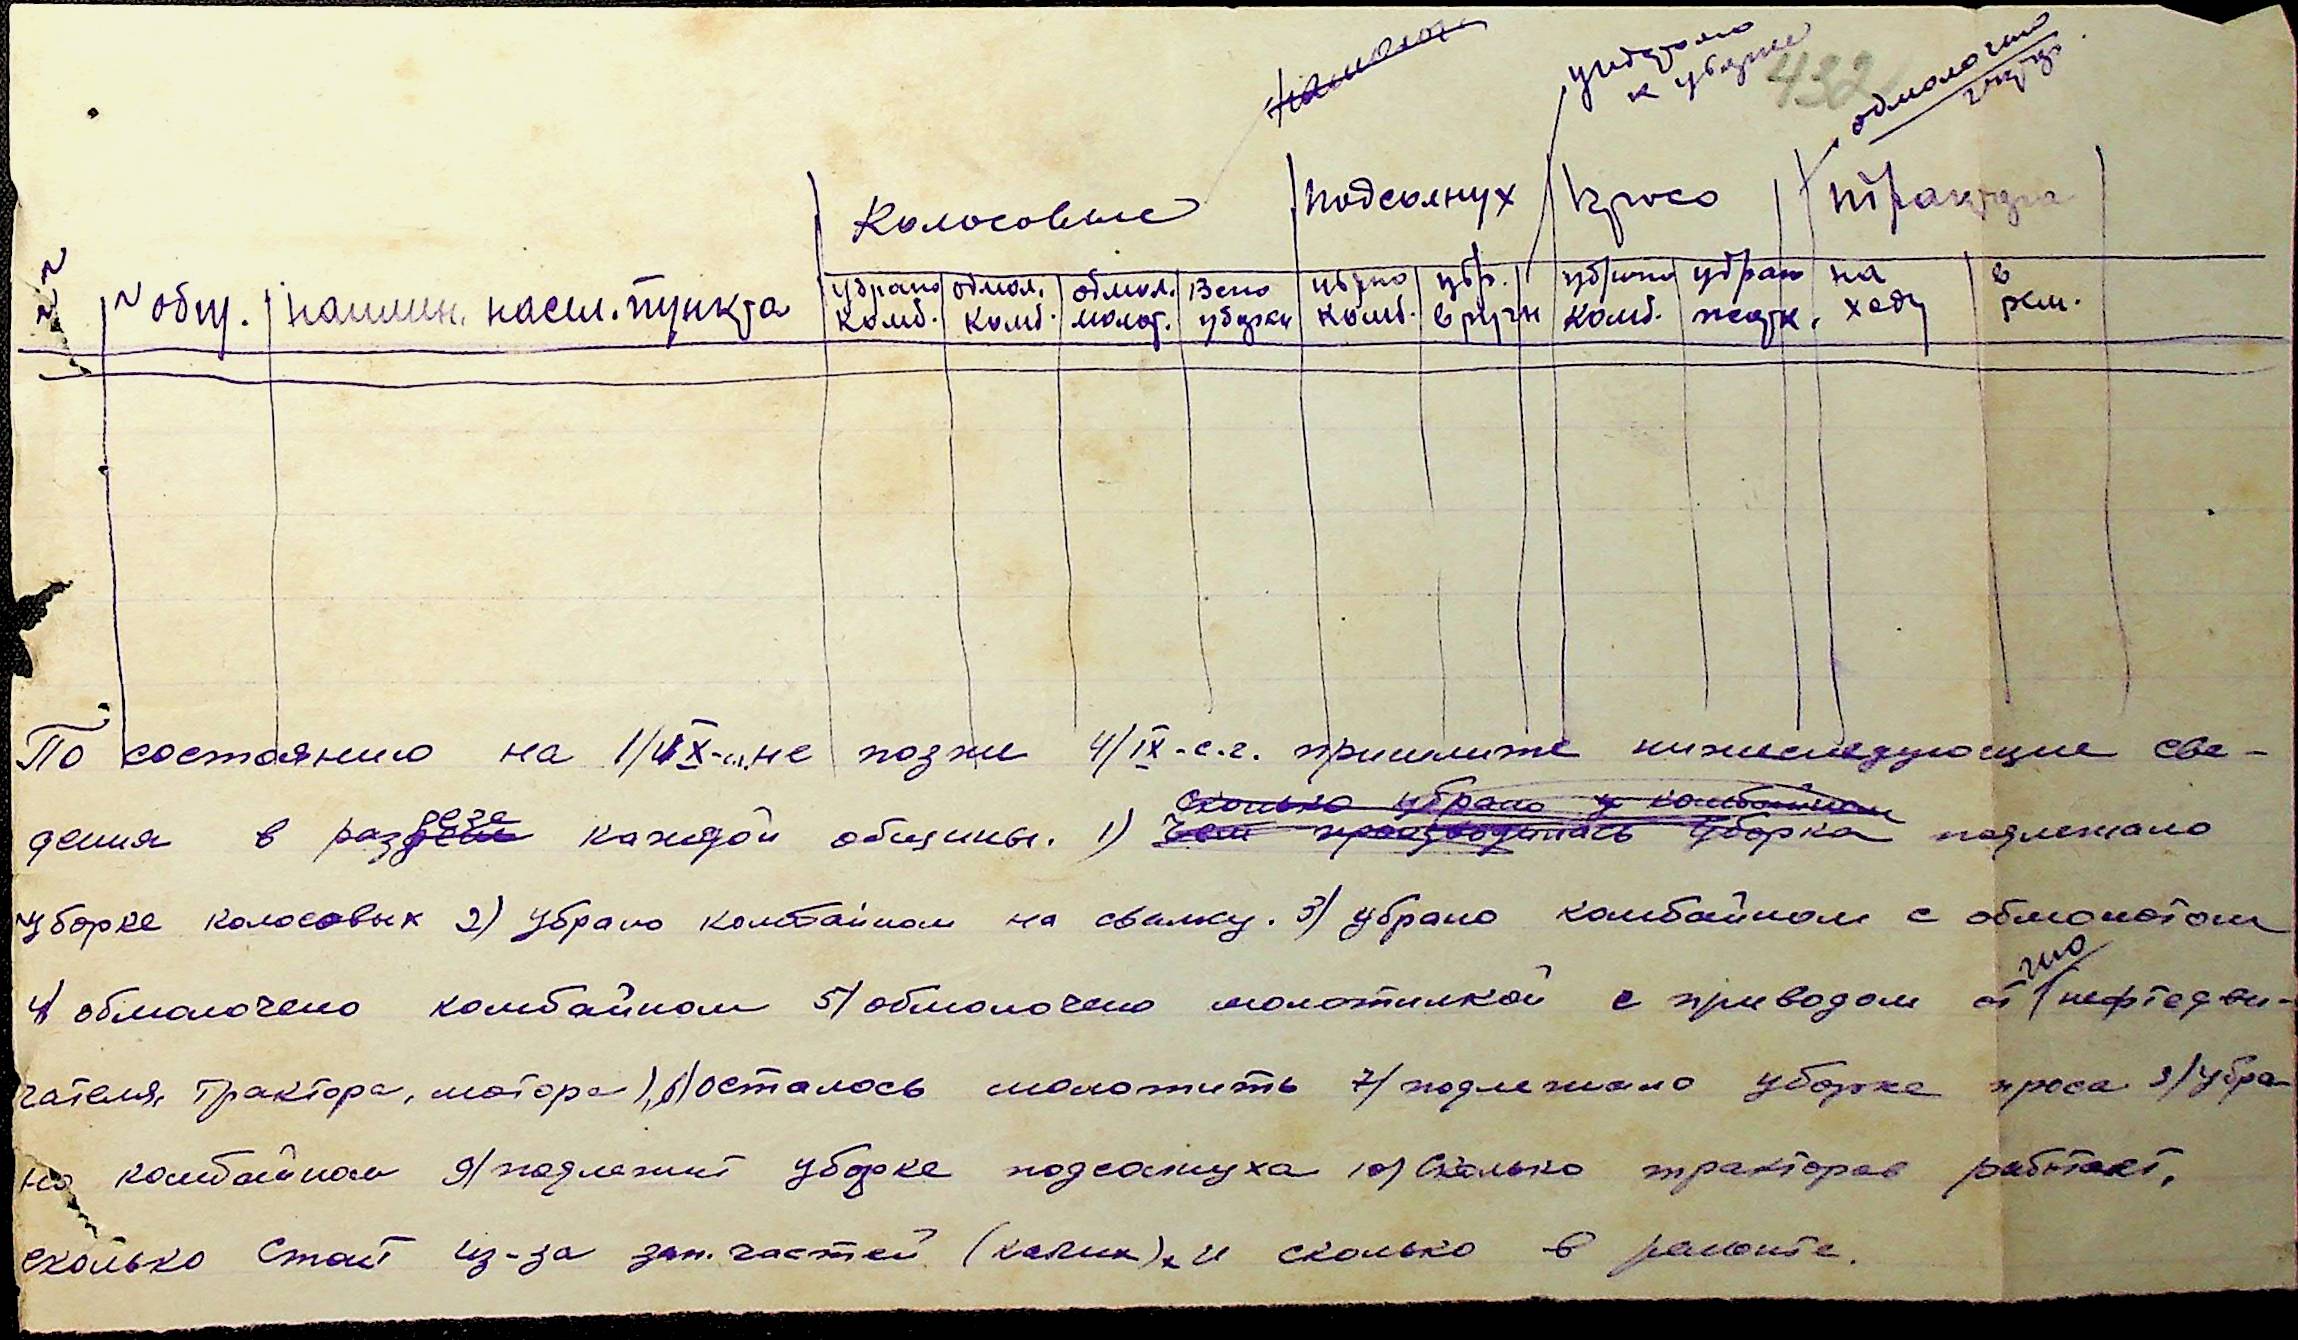 432
обмолочено
к уборке
Колосовые
Подсолнух
Просо
Трактора
№ общ.
наимен. насел. пункта
убрано комб.
обмол. комб.
обмол. молот.
Всего уборки
убрано комб.
убр. вручн
убрано комб.
убрано
на ходу
в рем.
По состоянию на не позже 4/IX-с.г. пришлите нижеследующие све-
дения в разрезе каждой общины. 1) Сколько убрано комбайном Чем производилась уборка подлежало
уборке колосовых 2) убрано комбайном на свалку. 3) убрано комбайном с обмолотом
4) обмолочено комбайном 5) обмолочено молотилкой с приводом от (нефтедви-
гателя, трактора, мотора), 6) осталось молотить 7) подлежало уборке проса 8) убра-
но комбайном 9) подлежит уборке подсолнуха 10) Сколько тракторов работает,
сколько стоит из-за зап. частей (каких), и сколько в ремонте.